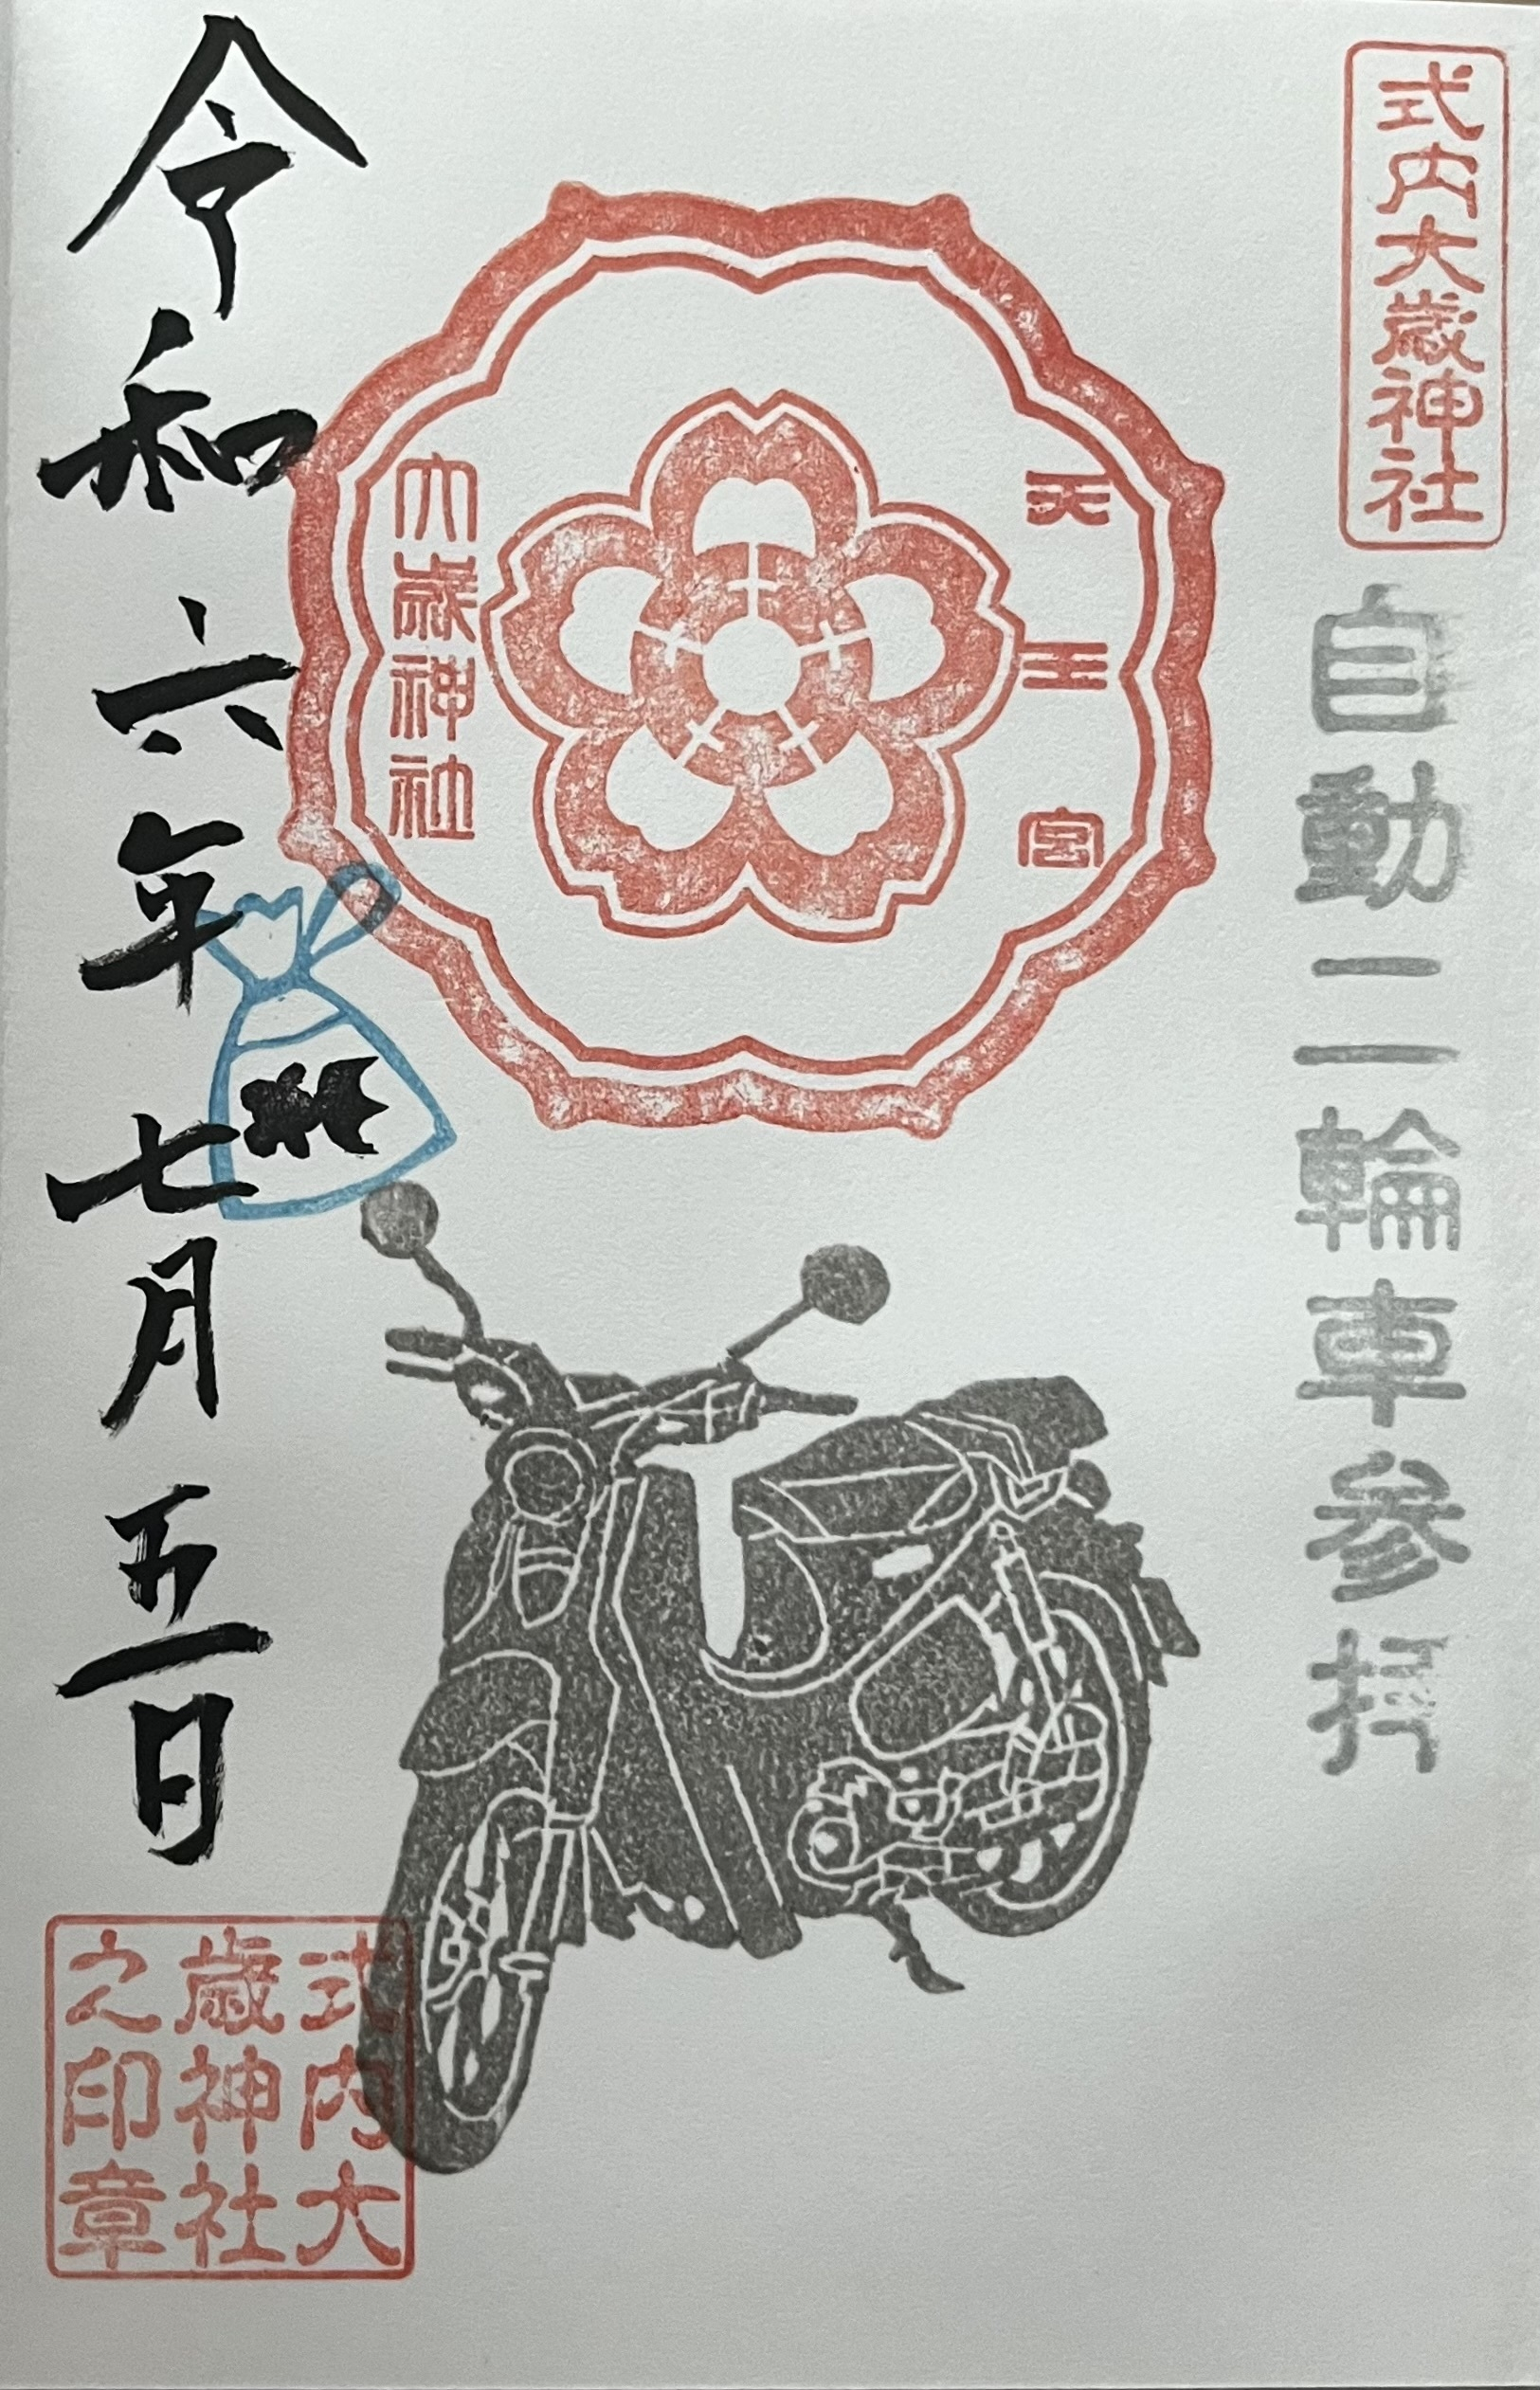 式内大歳神社
自動二輪車参拝
天王宮
大歳神社
令和六年七月五日
式内大
歳神社
之印章